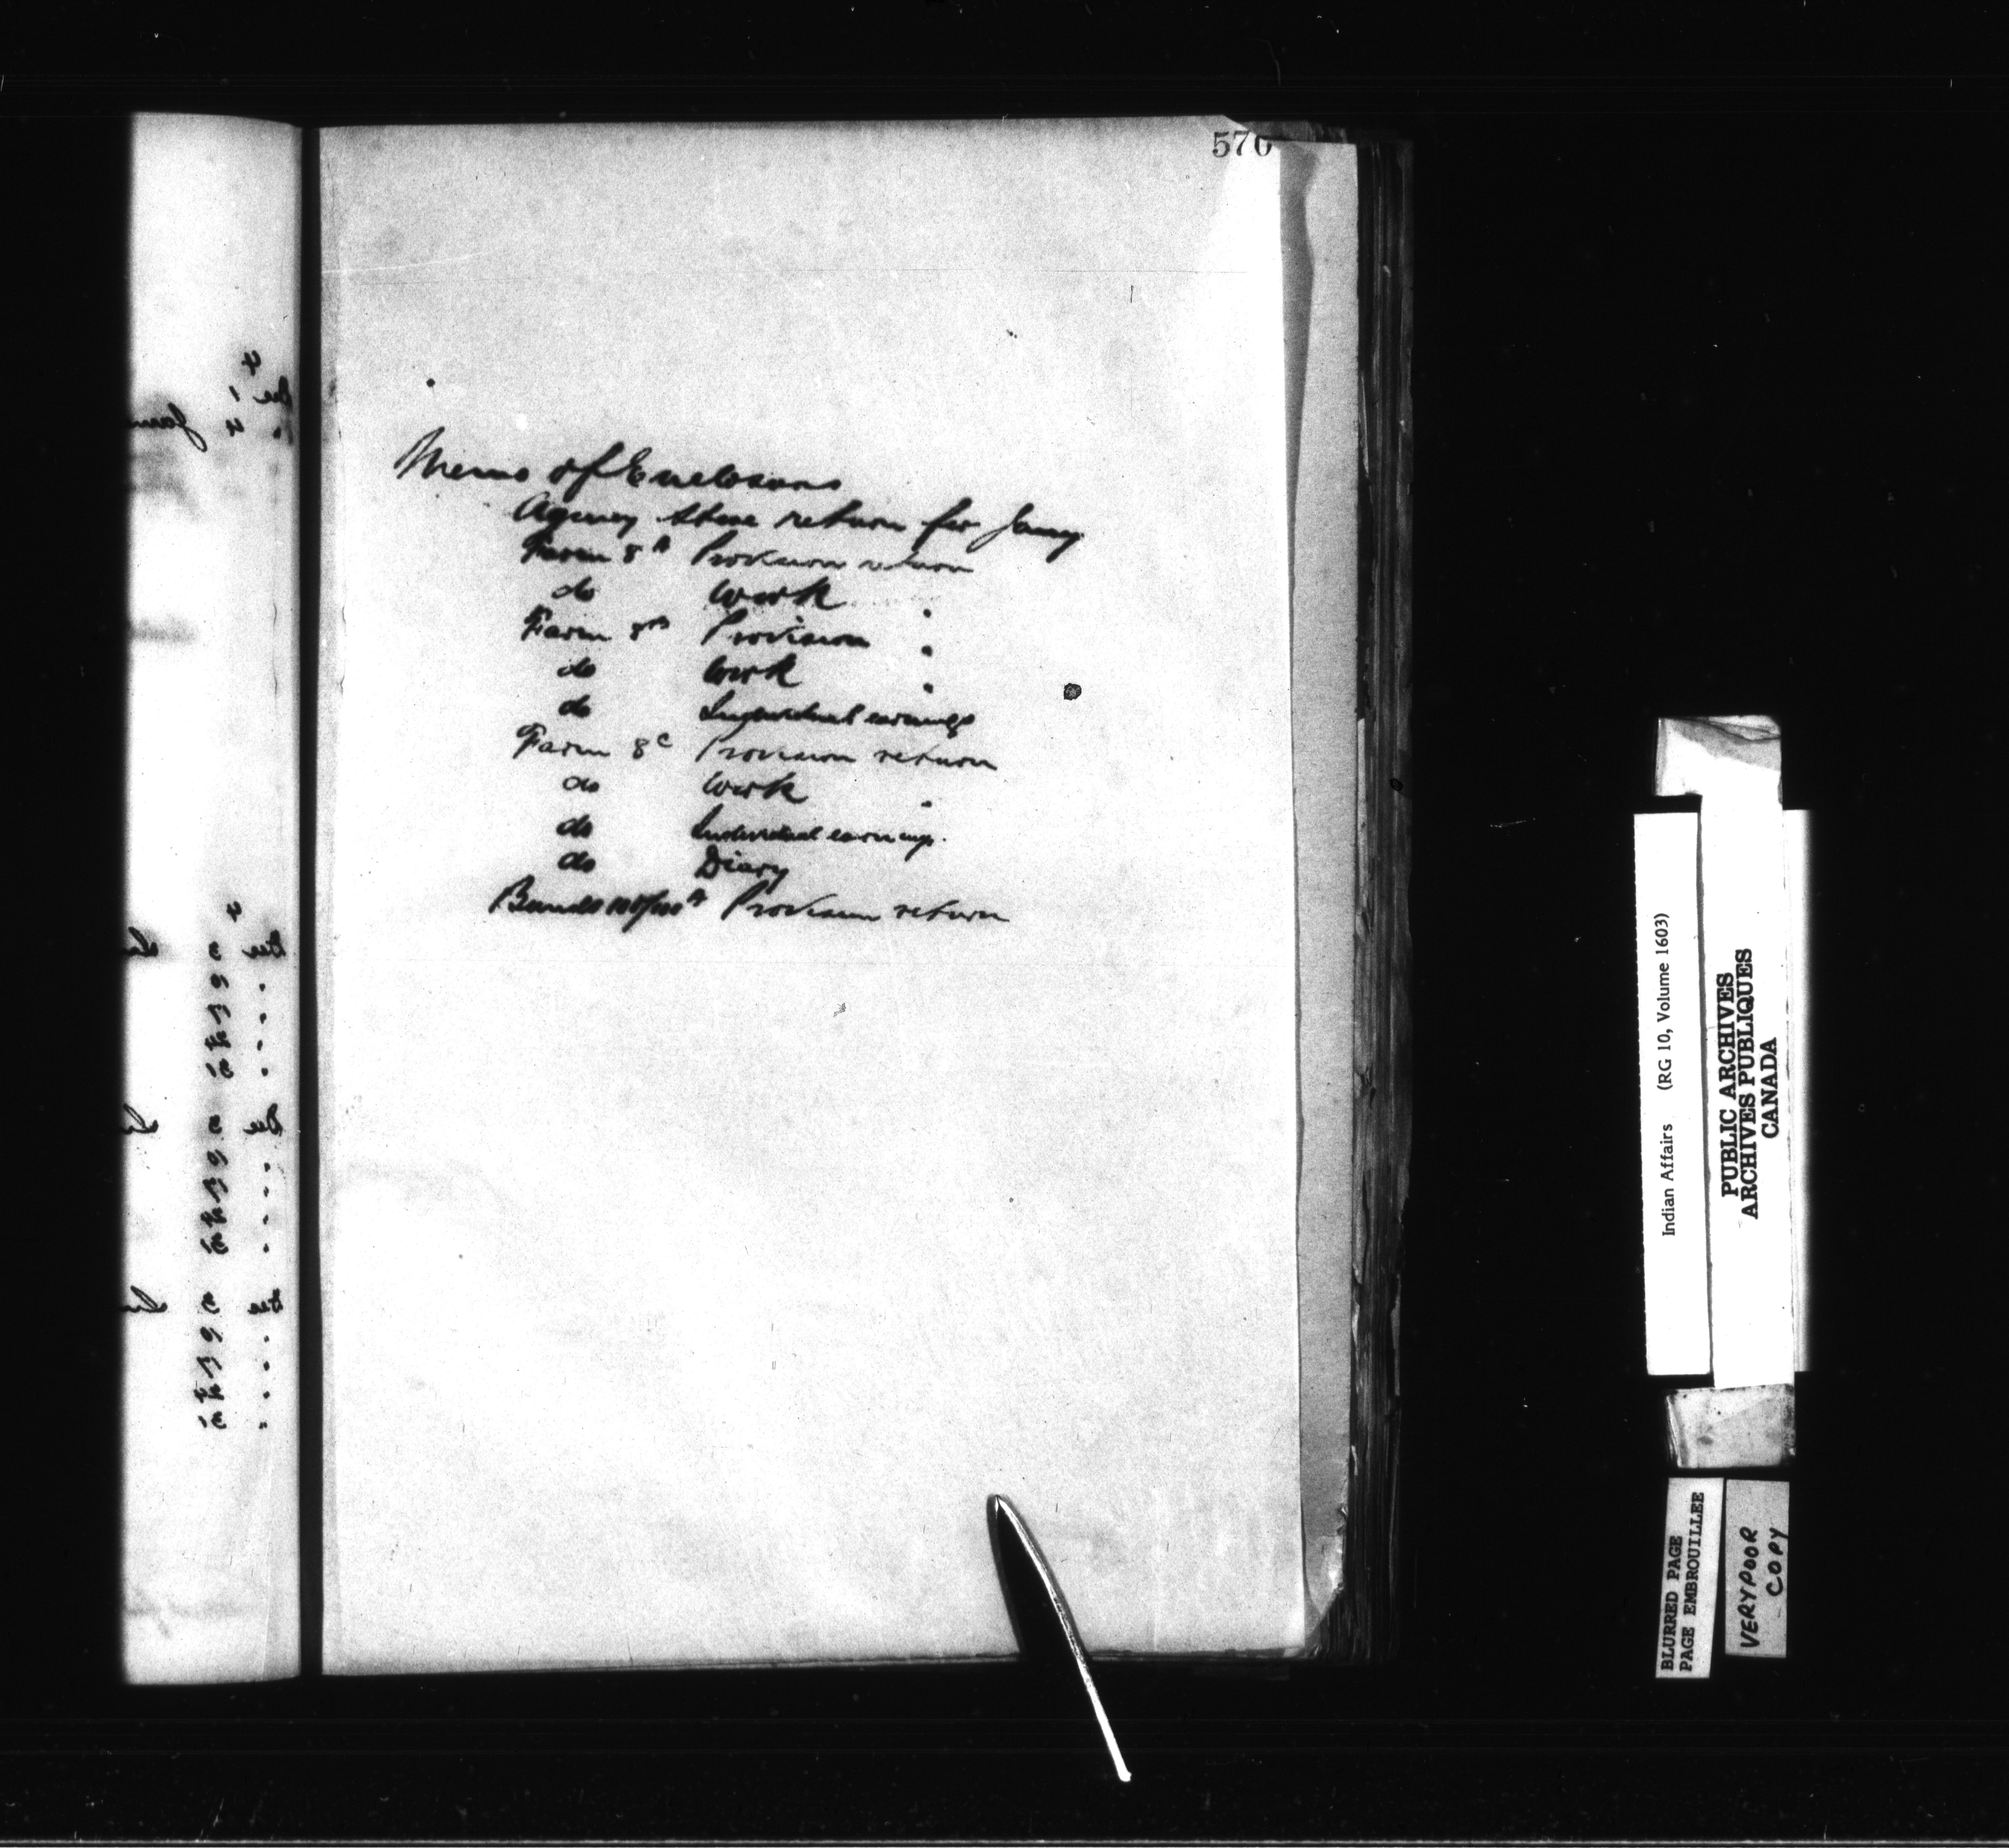 570
Memo of Enclosures
Agency Store return for Jany
Farm 8A Provision return
do Work "
Farm 8B Provision "
do Work "
do Individual earnings
Farm 8C Provision return
do Work "
do Individual earnings.
do Diary
Bands Provision return
Indian Affairs (RG 10, Volume 1603)
PUBLIC ARCHIVES
ARCHIVES PUBLIQUES
CANADA
BLURRED PAGE
PAGE EMBROUILLEE
VERY POOR
COPY